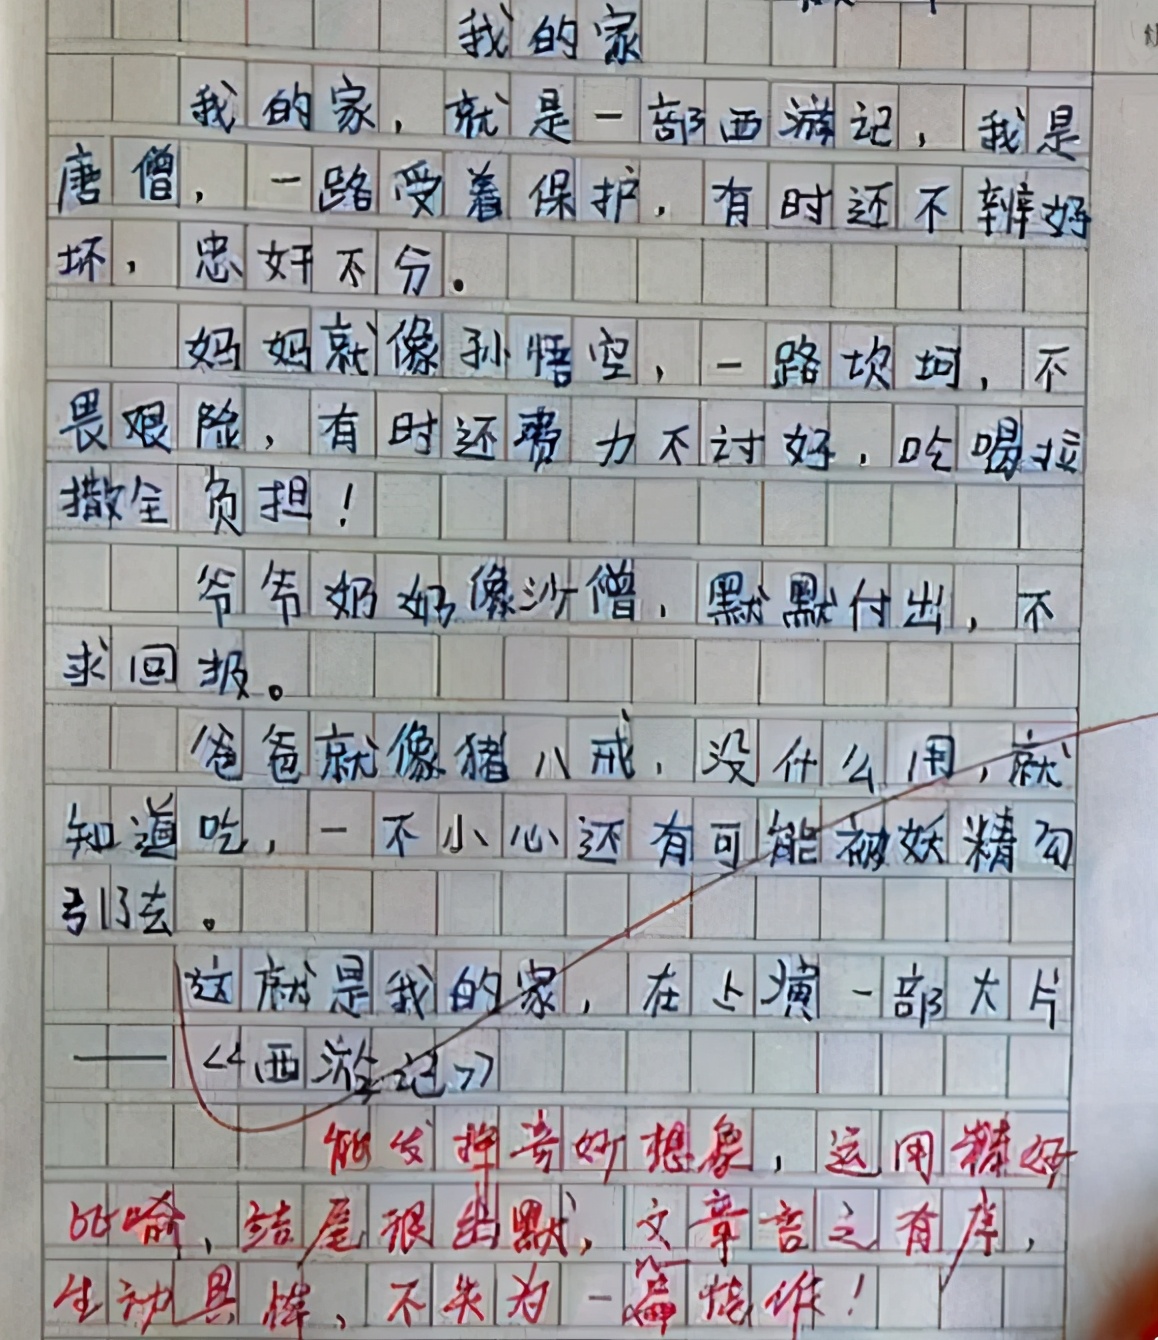 我的家
我的家，就是一部西游记，我是
唐僧，一路受着保护，有时还不辨好
坏，忠奸不分。
妈妈就像孙悟空，一路坎坷，不
畏艰险，有时还费力不讨好，吃喝拉
撒全负担！
爷爷奶奶像沙僧，默默付出，不
求回报。
爸爸就像猪八戒，没什么用，就
知道吃，一不小心还有可能被妖精勾
引了去。
这就是我的家，在上演一部大片
——《西游记》
能发挥奇妙想象，运用精好
比喻，结尾很幽默，文章言之有序，
生动具体，不失为一篇佳作！